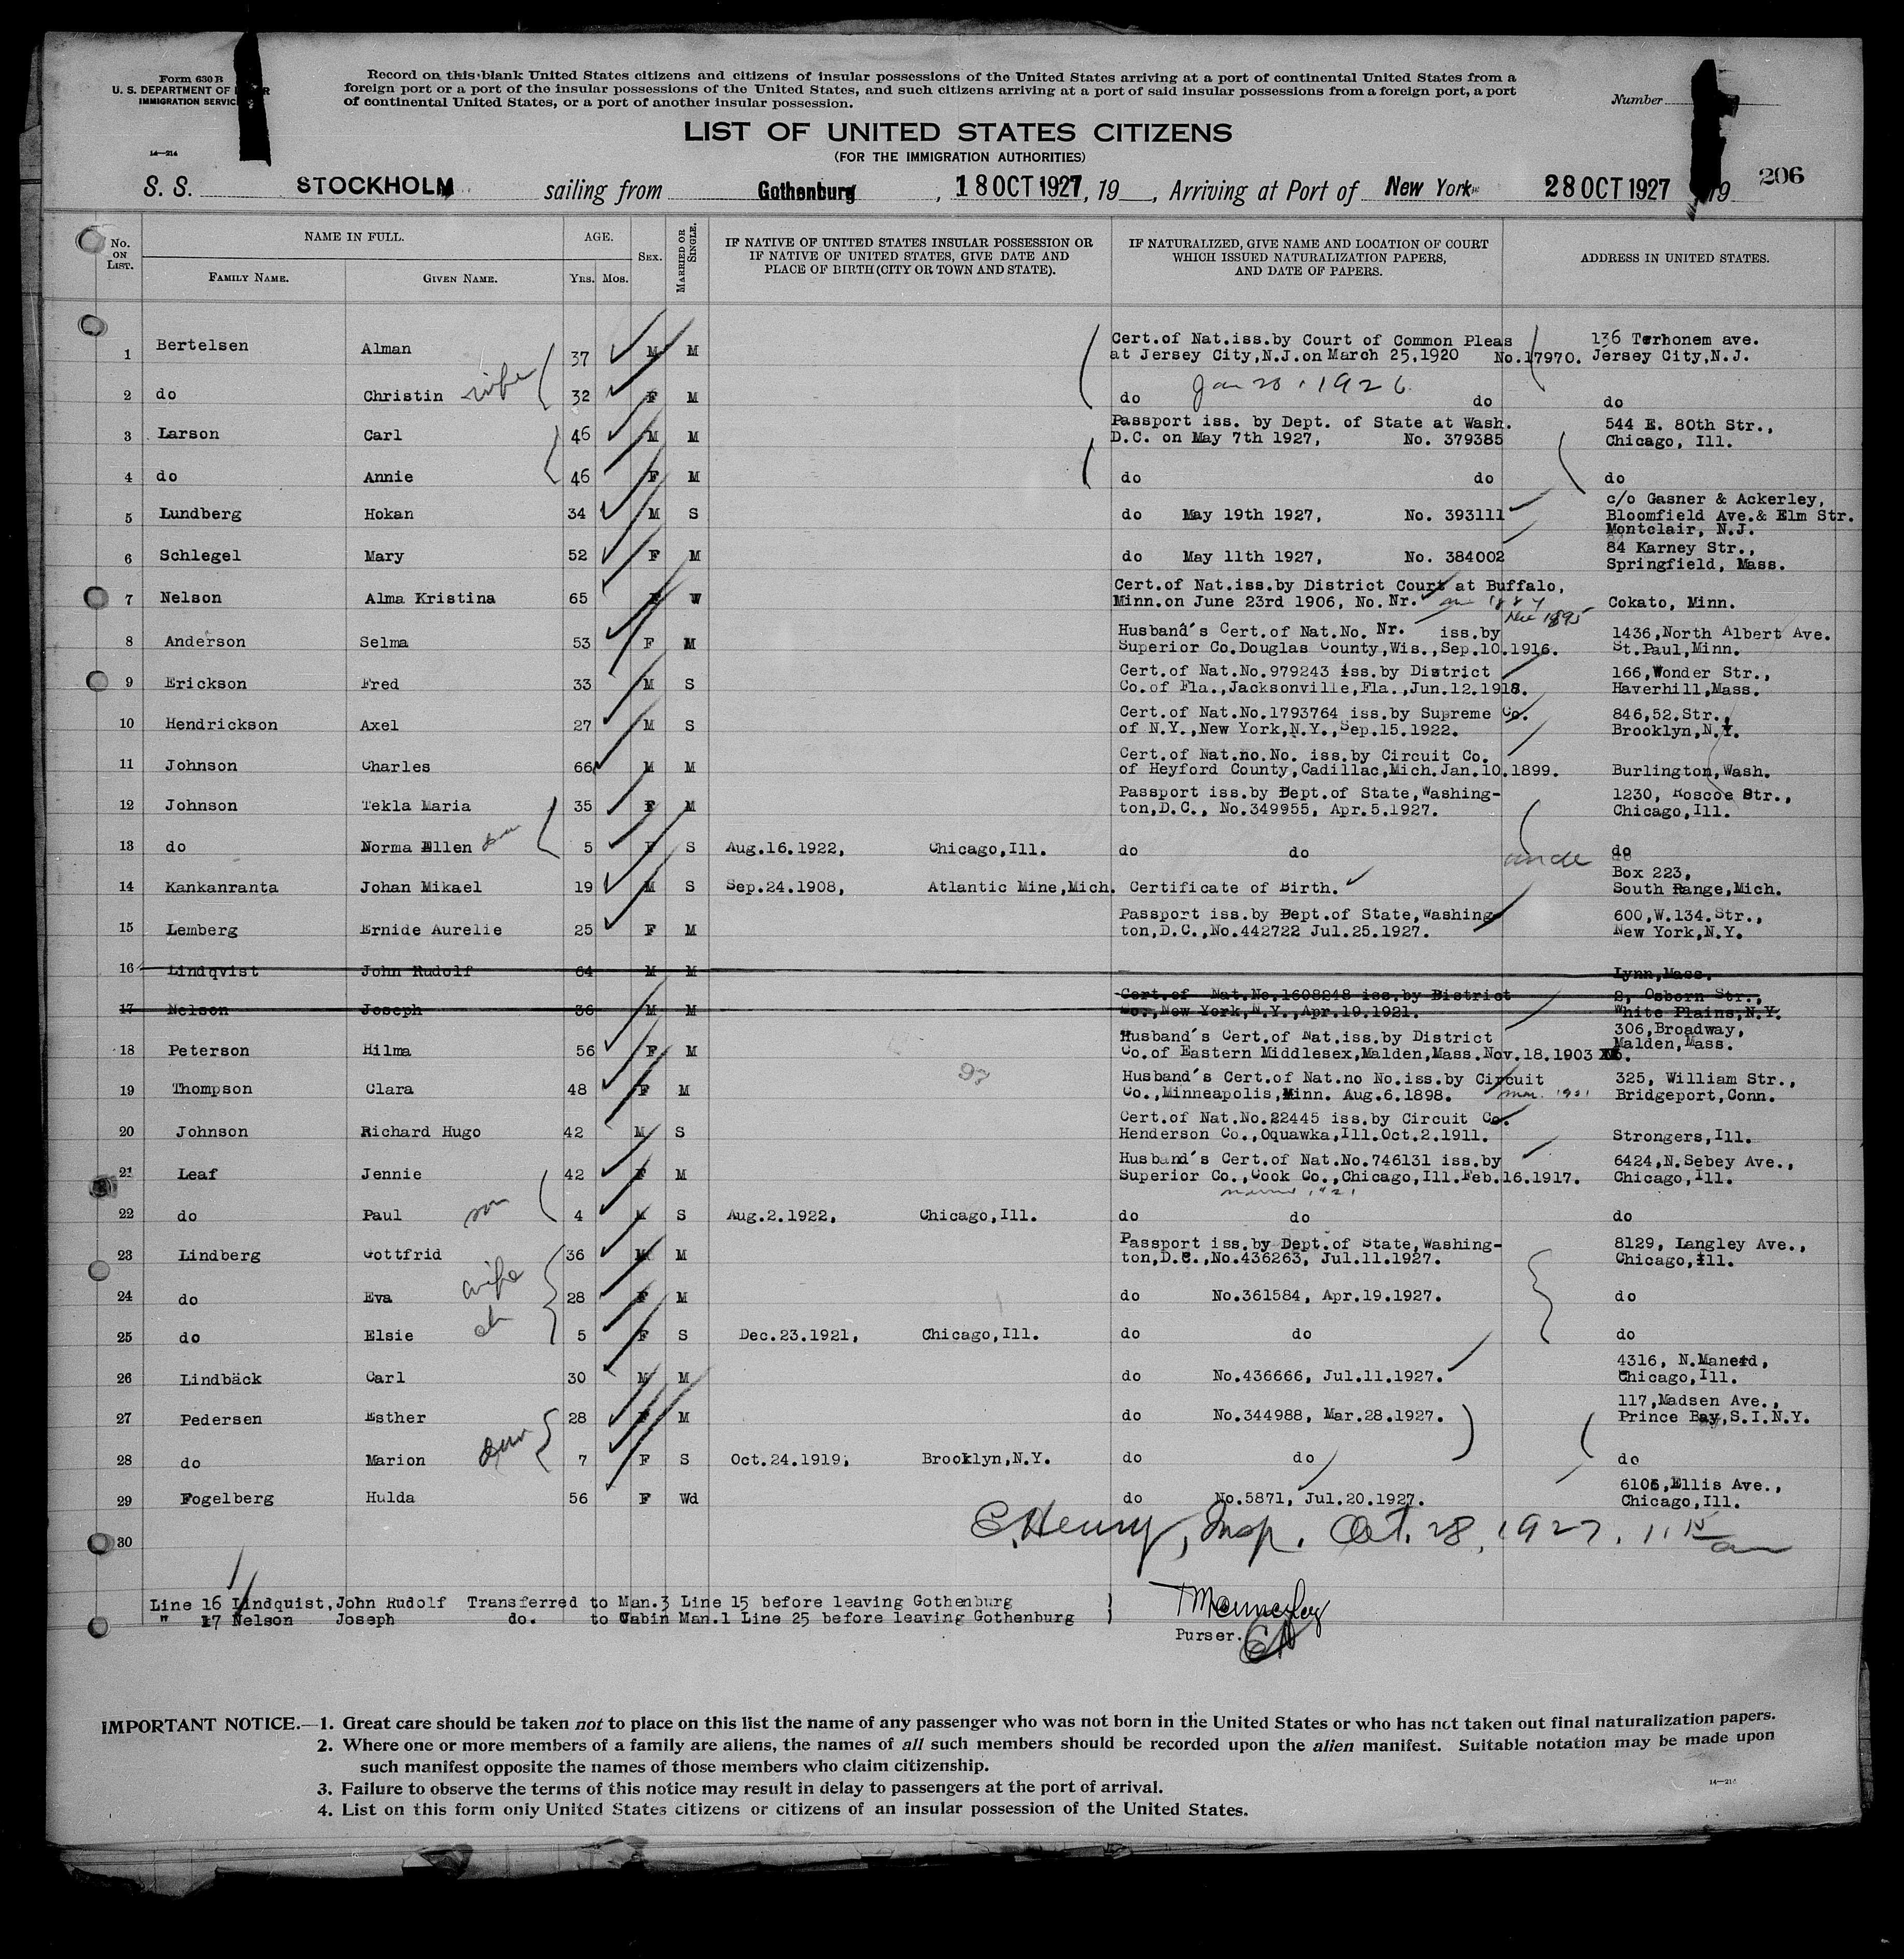 Form 630 B
U. S. DEPARTMENT OF
IMMIGRATION SERVICE
14—214
Record on this blank United States citizens and citizens of insular possessions of the United States arriving at a port of continental United States from a
foreign port or a port of the insular possessions of the United States, and such citizens arriving at a port of said insular possessions from a foreign port, a port
of continental United States, or a port of another insular possession.
Number
LIST OF UNITED STATES CITIZENS
(FOR THE IMMIGRATION AUTHORITIES)
206
S. S. STOCKHOLM sailing from Gothenburg, 18 OCT 1927, 19 , Arriving at Port of New York 28 OCT 1927 19
No. ON LIST. NAME IN FULL. FAMILY NAME. GIVEN NAME. AGE. YRS. MOS. SEX. MARRIED OR SINGLE. IF NATIVE OF UNITED STATES INSULAR POSSESSION OR IF NATIVE OF UNITED STATES, GIVE DATE AND PLACE OF BIRTH (CITY OR TOWN AND STATE). IF NATURALIZED, GIVE NAME AND LOCATION OF COURT WHICH ISSUED NATURALIZATION PAPERS, AND DATE OF PAPERS. ADDRESS IN UNITED STATES.
1 Bertelsen Alman 37 M M Cert.of Nat.iss.by Court of Common Pleas at Jersey City,N.J.on March 25,1920 No.17970. 136 Terhonem ave. Jersey City,N.J.
2 do Christin wife 32 F M do Jan 20, 1926 do do
3 Larson Carl 46 M M Passport iss. by Dept. of State at Wash. D.C. on May 7th 1927, No. 379385 544 E. 80th Str., Chicago, Ill.
4 do Annie 46 F M do do do
5 Lundberg Hokan 34 M S do May 19th 1927, No. 393111 c/o Gasner & Ackerley, Bloomfield Ave.& Elm Str. Montclair, N.J.
6 Schlegel Mary 52 F M do May 11th 1927, No. 384002 84 Karney Str., Springfield, Mass.
7 Nelson Alma Kristina 65 F W Cert.of Nat.iss.by District Court at Buffalo, Minn.on June 23rd 1906, No. Nr. Cokato, Minn.
8 Anderson Selma 53 F M Husband's Cert.of Nat.No. Nr. iss.by Superior Co.Douglas County,Wis.,Sep.10.1916. 1436,North Albert Ave. St.Paul,Minn.
9 Erickson Fred 33 M S Cert.of Nat.No.979243 iss.by District Co.of Fla.,Jacksonville,Fla.,Jun.12.1918. 166,Wonder Str., Haverhill,Mass.
10 Hendrickson Axel 27 M S Cert.of Nat.No.1793764 iss.by Supreme Co. of N.Y.,New York,N.Y.,Sep.15.1922. 846,52.Str., Brooklyn,N.Y.
11 Johnson Charles 66 M M Cert.of Nat.no.No. iss.by Circuit Co. of Heyford County,Cadillac,Mich.Jan.10.1899. Burlington,Wash.
12 Johnson Tekla Maria 35 F M Passport iss.by Dept.of State,Washing- ton,D.C., No.349955, Apr.5.1927. 1230, Roscoe Str., Chicago,Ill.
13 do Norma Ellen 5 F S Aug.16.1922, Chicago,Ill. do do do
14 Kankanranta Johan Mikael 19 M S Sep.24.1908, Atlantic Mine,Mich. Certificate of Birth. uncle Box 223, South Range,Mich.
15 Lemberg Ernide Aurelie 25 F M Passport iss.by Dept.of State,Washing- ton,D.C.,No.442722 Jul.25.1927. 600,W.134.Str., New York,N.Y.
16 Lindqvist John Rudolf 64 M M Lynn,Mass.
17 Nelson Joseph 36 M M Cert.of Nat.No.1608248 iss.by District Co.,New York,N.Y.,Apr.19.1921. 2, Osborn Str., White Plains,N.Y.
18 Peterson Hilma 56 F M Husband's Cert.of Nat.iss.by District Co.of Eastern Middlesex,Malden,Mass.Nov.18.1903 306,Broadway, Malden,Mass.
19 Thompson Clara 48 F M Husband's Cert.of Nat.no No.iss.by Circuit Co.,Minneapolis,Minn. Aug.6.1898. 325, William Str., Bridgeport,Conn.
20 Johnson Richard Hugo 42 M S Cert.of Nat.No.22445 iss.by Circuit Co. Henderson Co.,Oquawka,Ill.Oct.2.1911. Strongers,Ill.
21 Leaf Jennie 42 F M Husband's Cert.of Nat.No.746131 iss.by Superior Co.,Cook Co.,Chicago,Ill.Feb.16.1917. 6424,N.Sebey Ave., Chicago,Ill.
22 do Paul son 4 M S Aug.2.1922, Chicago,Ill. do do do
23 Lindberg Gottfrid 36 M M Passport iss.by Dept.of State,Washing- ton,D.C.,No.436263, Jul.11.1927. 8129, Langley Ave., Chicago,Ill.
24 do Eva wife 28 F M do No.361584, Apr.19.1927. do
25 do Elsie ch 5 F S Dec.23.1921, Chicago,Ill. do do do
26 Lindbäck Carl 30 M M do No.436666, Jul.11.1927. 4316, N. Chicago,Ill.
27 Pedersen Esther 28 F M do No.344988, Mar.28.1927. 117,Madsen Ave., Prince Bay,S.I.N.Y.
28 do Marion 7 F S Oct.24.1919, Brooklyn,N.Y. do do do
29 Fogelberg Hulda 56 F Wd do No.5871, Jul.20.1927. 6106,Ellis Ave., Chicago,Ill.
30
E. Henry, Insp. Oct. 28, 1927. 11 15 am
Line 16 Lindquist,John Rudolf Transferred to Man.3 Line 15 before leaving Gothenburg
" 17 Nelson Joseph do. to Cabin Man.1 Line 25 before leaving Gothenburg
Purser.
IMPORTANT NOTICE.—1. Great care should be taken not to place on this list the name of any passenger who was not born in the United States or who has not taken out final naturalization papers.
2. Where one or more members of a family are aliens, the names of all such members should be recorded upon the alien manifest. Suitable notation may be made upon
such manifest opposite the names of those members who claim citizenship.
3. Failure to observe the terms of this notice may result in delay to passengers at the port of arrival.
4. List on this form only United States citizens or citizens of an insular possession of the United States.
14—214